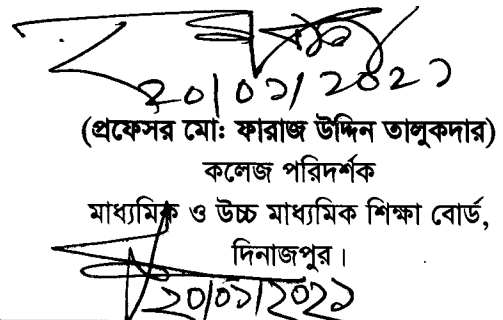 ২০/০১/২০২১
(প্রফেসর মো: ফারাজ উদ্দিন তালুকদার)
কলেজ পরিদর্শক
মাধ্যমিক ও উচ্চ মাধ্যমিক শিক্ষা বোর্ড,
দিনাজপুর।
২০/০১/২০২১